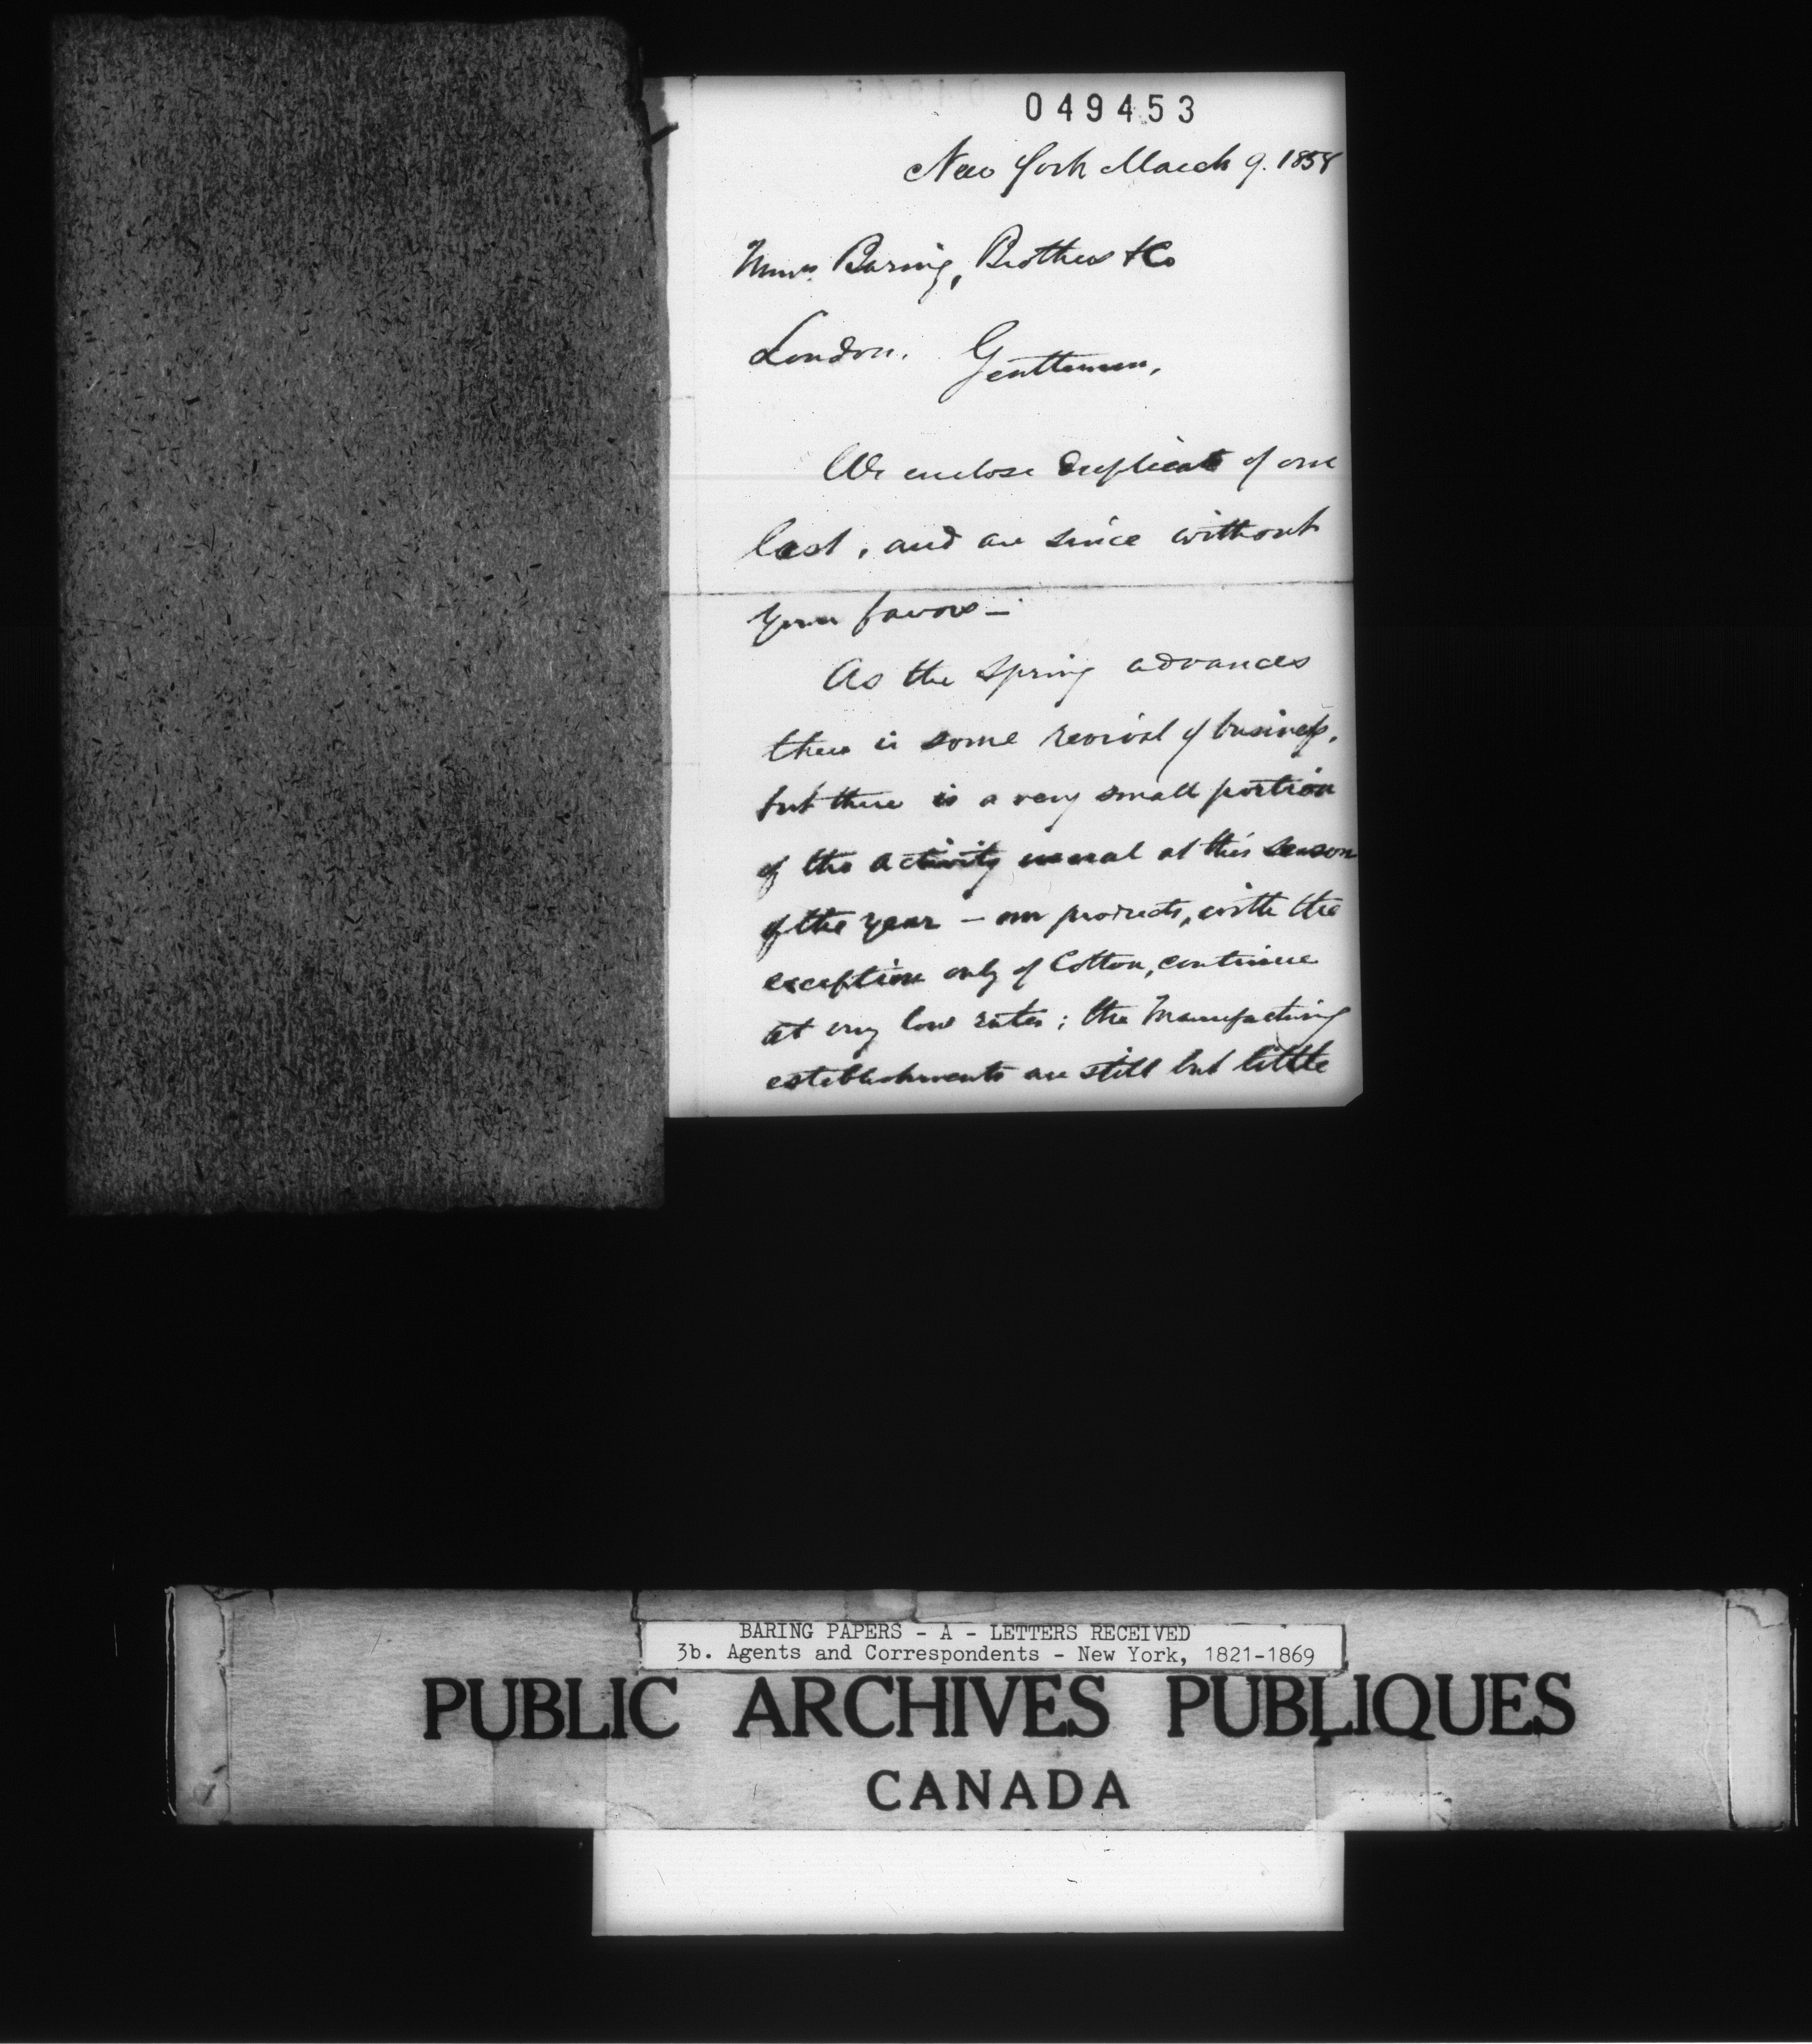 049453
New York March 9. 1858
Messrs. Baring, Brothers & Co
London. Gentlemen,
We enclose duplicate of our
last, and are since without
your favors —
As the Spring advances
there is some revival of business,
but there is a very small portion
of the activity usual at this season
of the year — our products, with the
exception only of Cotton, continue
at very low rates; the Manufacturing
establishments are still but little
BARING PAPERS - A - LETTERS RECEIVED
3b. Agents and Correspondents - New York, 1821-1869
PUBLIC ARCHIVES PUBLIQUES
CANADA